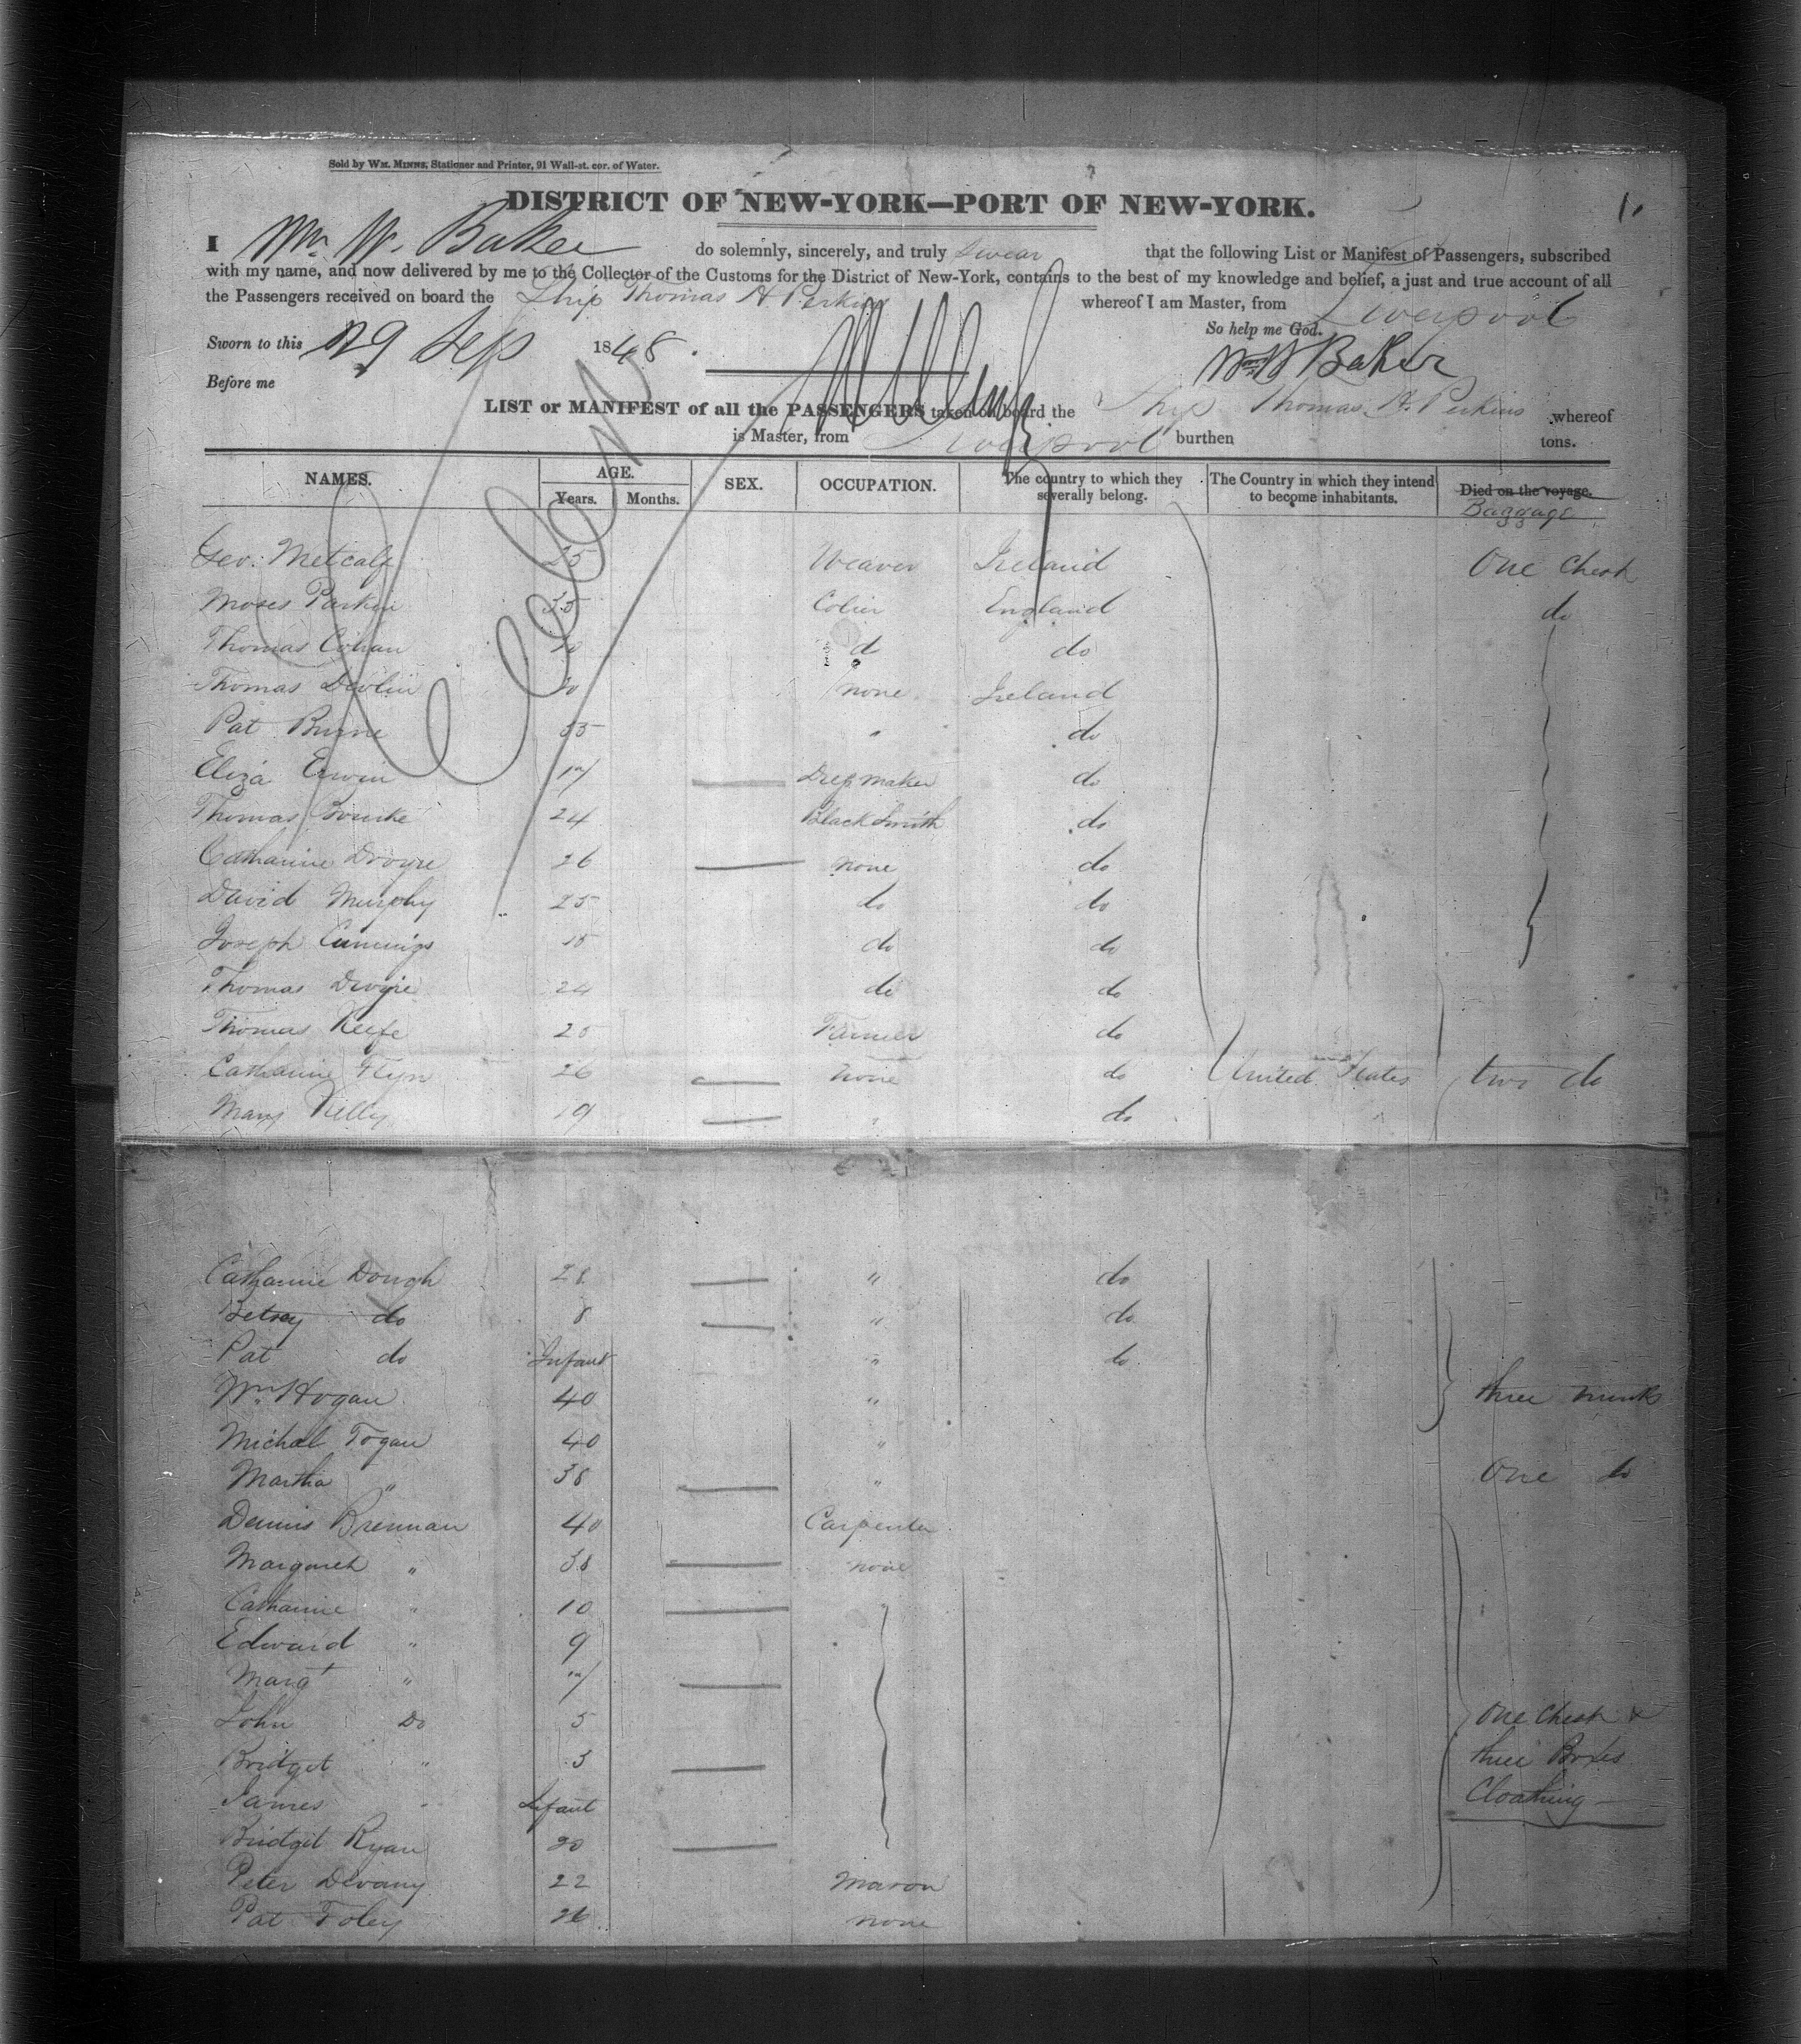 Sold by WM. MINNS, Stationer and Printer, 91 Wall-st. cor. of Water.
DISTRICT OF NEW-YORK—PORT OF NEW-YORK.
1.
I Wm W. Baker do solemnly, sincerely, and truly swear that the following List or Manifest of Passengers, subscribed
with my name, and now delivered by me to the Collector of the Customs for the District of New-York, contains to the best of my knowledge and belief, a just and true account of all
the Passengers received on board the Ship Thomas H Perkins whereof I am Master, from Liverpool
So help me God.
Sworn to this 29 Sep 1848.
Wm W Baker
Before me
LIST or MANIFEST of all the PASSENGERS taken on board the Ship Thomas H. Perkins whereof
is Master, from Liverpool burthen tons.
NAMES. AGE. Years. Months. SEX. OCCUPATION. The country to which they severally belong. The Country in which they intend to become inhabitants. Died on the voyage. Baggage
Geo. Metcalf 25 Weaver Ireland One Chest
Moses Parkin 35 Colier England do
Thomas do do
Thomas Devlin none Ireland
Pat Burne 35 " do
Eliza Erwin 17 Dressmaker do
Thomas Bourke 24 Blacksmith do
Catharine Dwyre 26 none do
David Murphy 25 do do
Joseph Cummings 18 do do
Thomas Dwyre 24 do do
Thomas Keefe 20 Farmer do
Catharine Flyn 26 none do United States two do
Mary Kelly 19 " do
Catharine Dough 28 " do
Betsey do 8 " do
Pat do Infant " do
Wm Hogan 40 " three trunks
Michal Fogan 40 "
Martha " 38 " One do
Dennis Brennan 40 Carpenter
Margareh " 38 none
Catharine " 10
Edward " 9
Margt " 7
John Do 5 One Chest &
Bridget " 3 three Boxes
James " Infant Cloathing
Bridgit Ryan 20
Peter Devany 22 Mason
Pat Foley 26 none